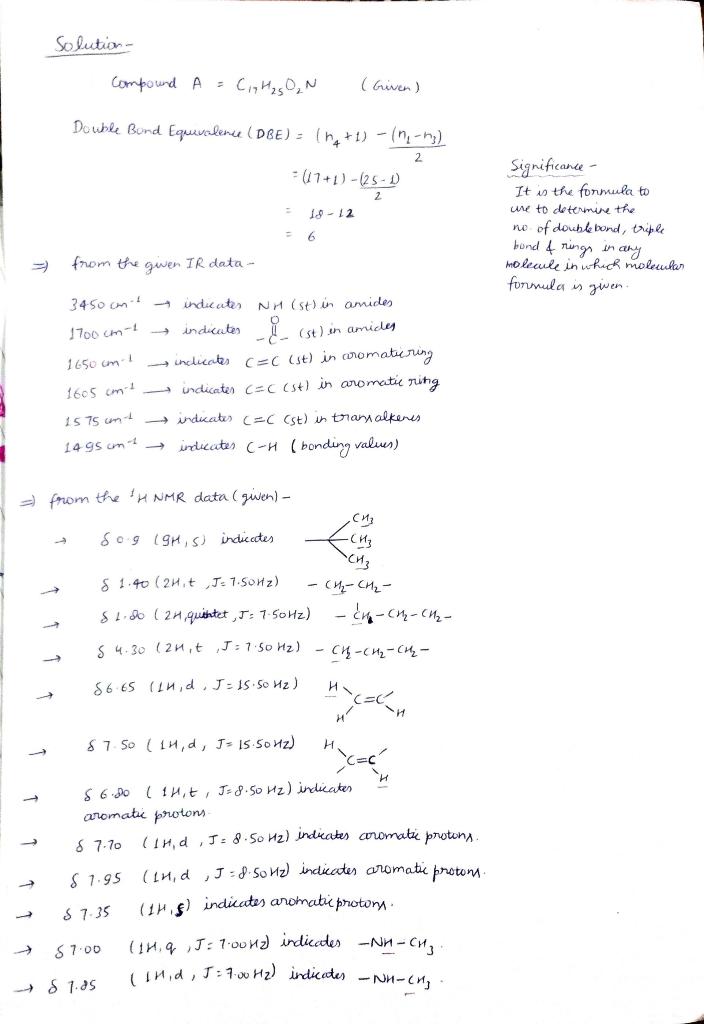 Solution -
Compound A = C17H25O2N (Given)
Double Bond Equivalence (DBE) = (n4 + 1) - (n1 - n3)
2
= (17+1) - (25-1)
2
= 18 - 12
= 6
Significance -
It is the formula to
use to determine the
no. of double bond, triple
bond & rings in any
molecule in which molecular
formula is given.
⇒ from the given IR data -
3450 cm-1 → indicates NH (st) in amides
O
1700 cm-1 → indicates -C- (st) in amides
1650 cm-1 → indicates C=C (st) in aromatic ring
1605 cm-1 → indicates C=C (st) in aromatic ring
1575 cm-1 → indicates C=C (st) in trans alkenes
1495 cm-1 → indicates C-H (bonding values)
⇒ from the 1H NMR data (given) -
CH3
→ δ 0.9 (9H, s) indicates CH3
CH3
→ δ 1.40 (2H, t, J=7.50Hz) - CH2-CH2-
→ δ 1.80 (2H, quintet, J= 7.50Hz) - CH2-CH2-CH2-
→ δ 4.30 (2H, t, J= 7.50 Hz) - CH2-CH2-CH2-
→ δ 6.65 (1H, d, J= 15.50 Hz) H C=C
H H
→ δ 7.50 (1H, d, J= 15.50Hz) H C=C
H
→ δ 6.80 (1H, t, J=8.50 Hz) indicates
aromatic protons.
→ δ 7.70 (1H, d, J= 8.50 Hz) indicates aromatic protons.
→ δ 7.95 (1H, d, J=8.50Hz) indicates aromatic protons.
→ δ 7.35 (1H, s) indicates aromatic protons.
→ δ 7.00 (1H, q, J= 7.00Hz) indicates -NH-CH3.
→ δ 7.85 (1H, d, J= 7.00 Hz) indicates -NH-CH3.